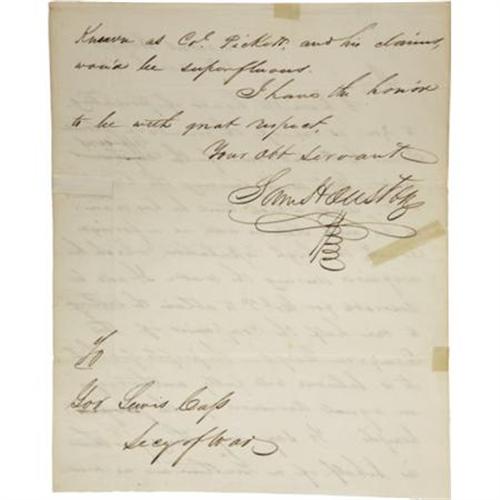 Known as Col. Pickett, and his claims,
would be superfluous.
I have the honor
to be with great respect,
Your obt servant
Sam Houston
To
Gov Lewis Cass
Secy of War